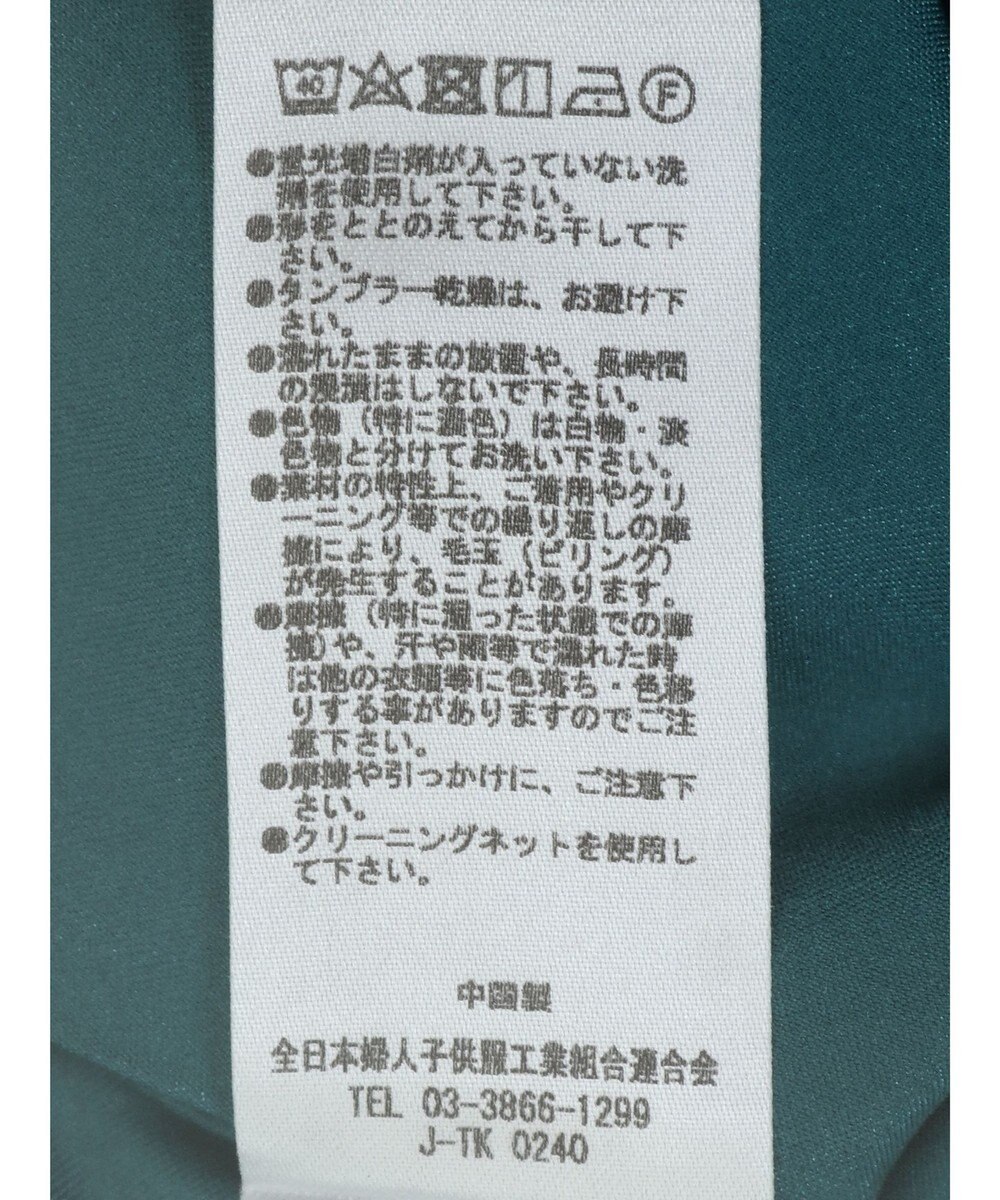 40
F
●蛍光増白剤が入っていない洗
剤を使用して下さい。
●形をととのえてから干して下
さい。
●タンブラー乾燥は、お避け下
さい。
●濡れたままの放置や、長時間
の浸漬はしないで下さい。
●色物（特に濃色）は白物・淡
色物と分けてお洗い下さい。
●素材の特性上、ご着用やクリ
ーニング等での繰り返しの摩
擦により、毛玉（ピリング）
が発生することがあります。
●摩擦（特に湿った状態での摩
擦）や、汗や雨等で濡れた時
は他の衣類等に色落ち・色移
りする事がありますのでご注
意下さい。
●摩擦や引っかけに、ご注意下
さい。
●クリーニングネットを使用し
て下さい。
中国製
全日本婦人子供服工業組合連合会
TEL 03-3866-1299
J-TK 0240